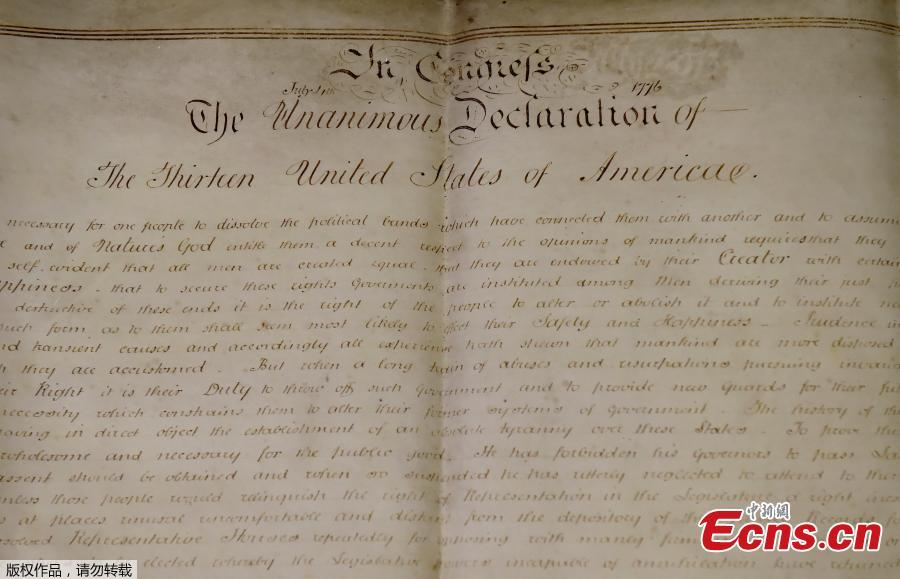 In Congress
July 4th 1776
The Unanimous Declaration of
The Thirteen United States of America.
necessary for one people to dissolve the political bands which have connected them with another and to assume
and of Nature's God entitle them a decent respect to the opinions of mankind requires that they
self evident that all men are created equal that they are endowed by their Creator with certain
that to secure these rights Governments are instituted among Men deriving their just
destructive of these ends it is the right of the people to alter or abolish it and to institute
such form as to them shall seem most likely to effect their Safety and Happiness. Prudence
and transient causes and accordingly all experience hath shewn that mankind are more disposed
they are accustomed. But when a long train of abuses and usurpations pursuing
Right it is their Duty to throw off such Government and to provide new Guards for their
necessity which constrains them to alter their former systems of Government. The history of the
having in direct object the establishment of an absolute tyranny over these States. To prove
wholesome and necessary for the public good. He has forbidden his Governors to pass
assent should be obtained and when so suspended he has utterly neglected to attend to
unless those people would relinquish the right of Representation in the Legislature a right
at places unusual uncomfortable and distant from the depository of
Representative Houses repeatedly for opposing with manly
elected whereby the Legislative powers incapable of annihilation have returned
中新网
Ecns.cn
版权作品,请勿转载